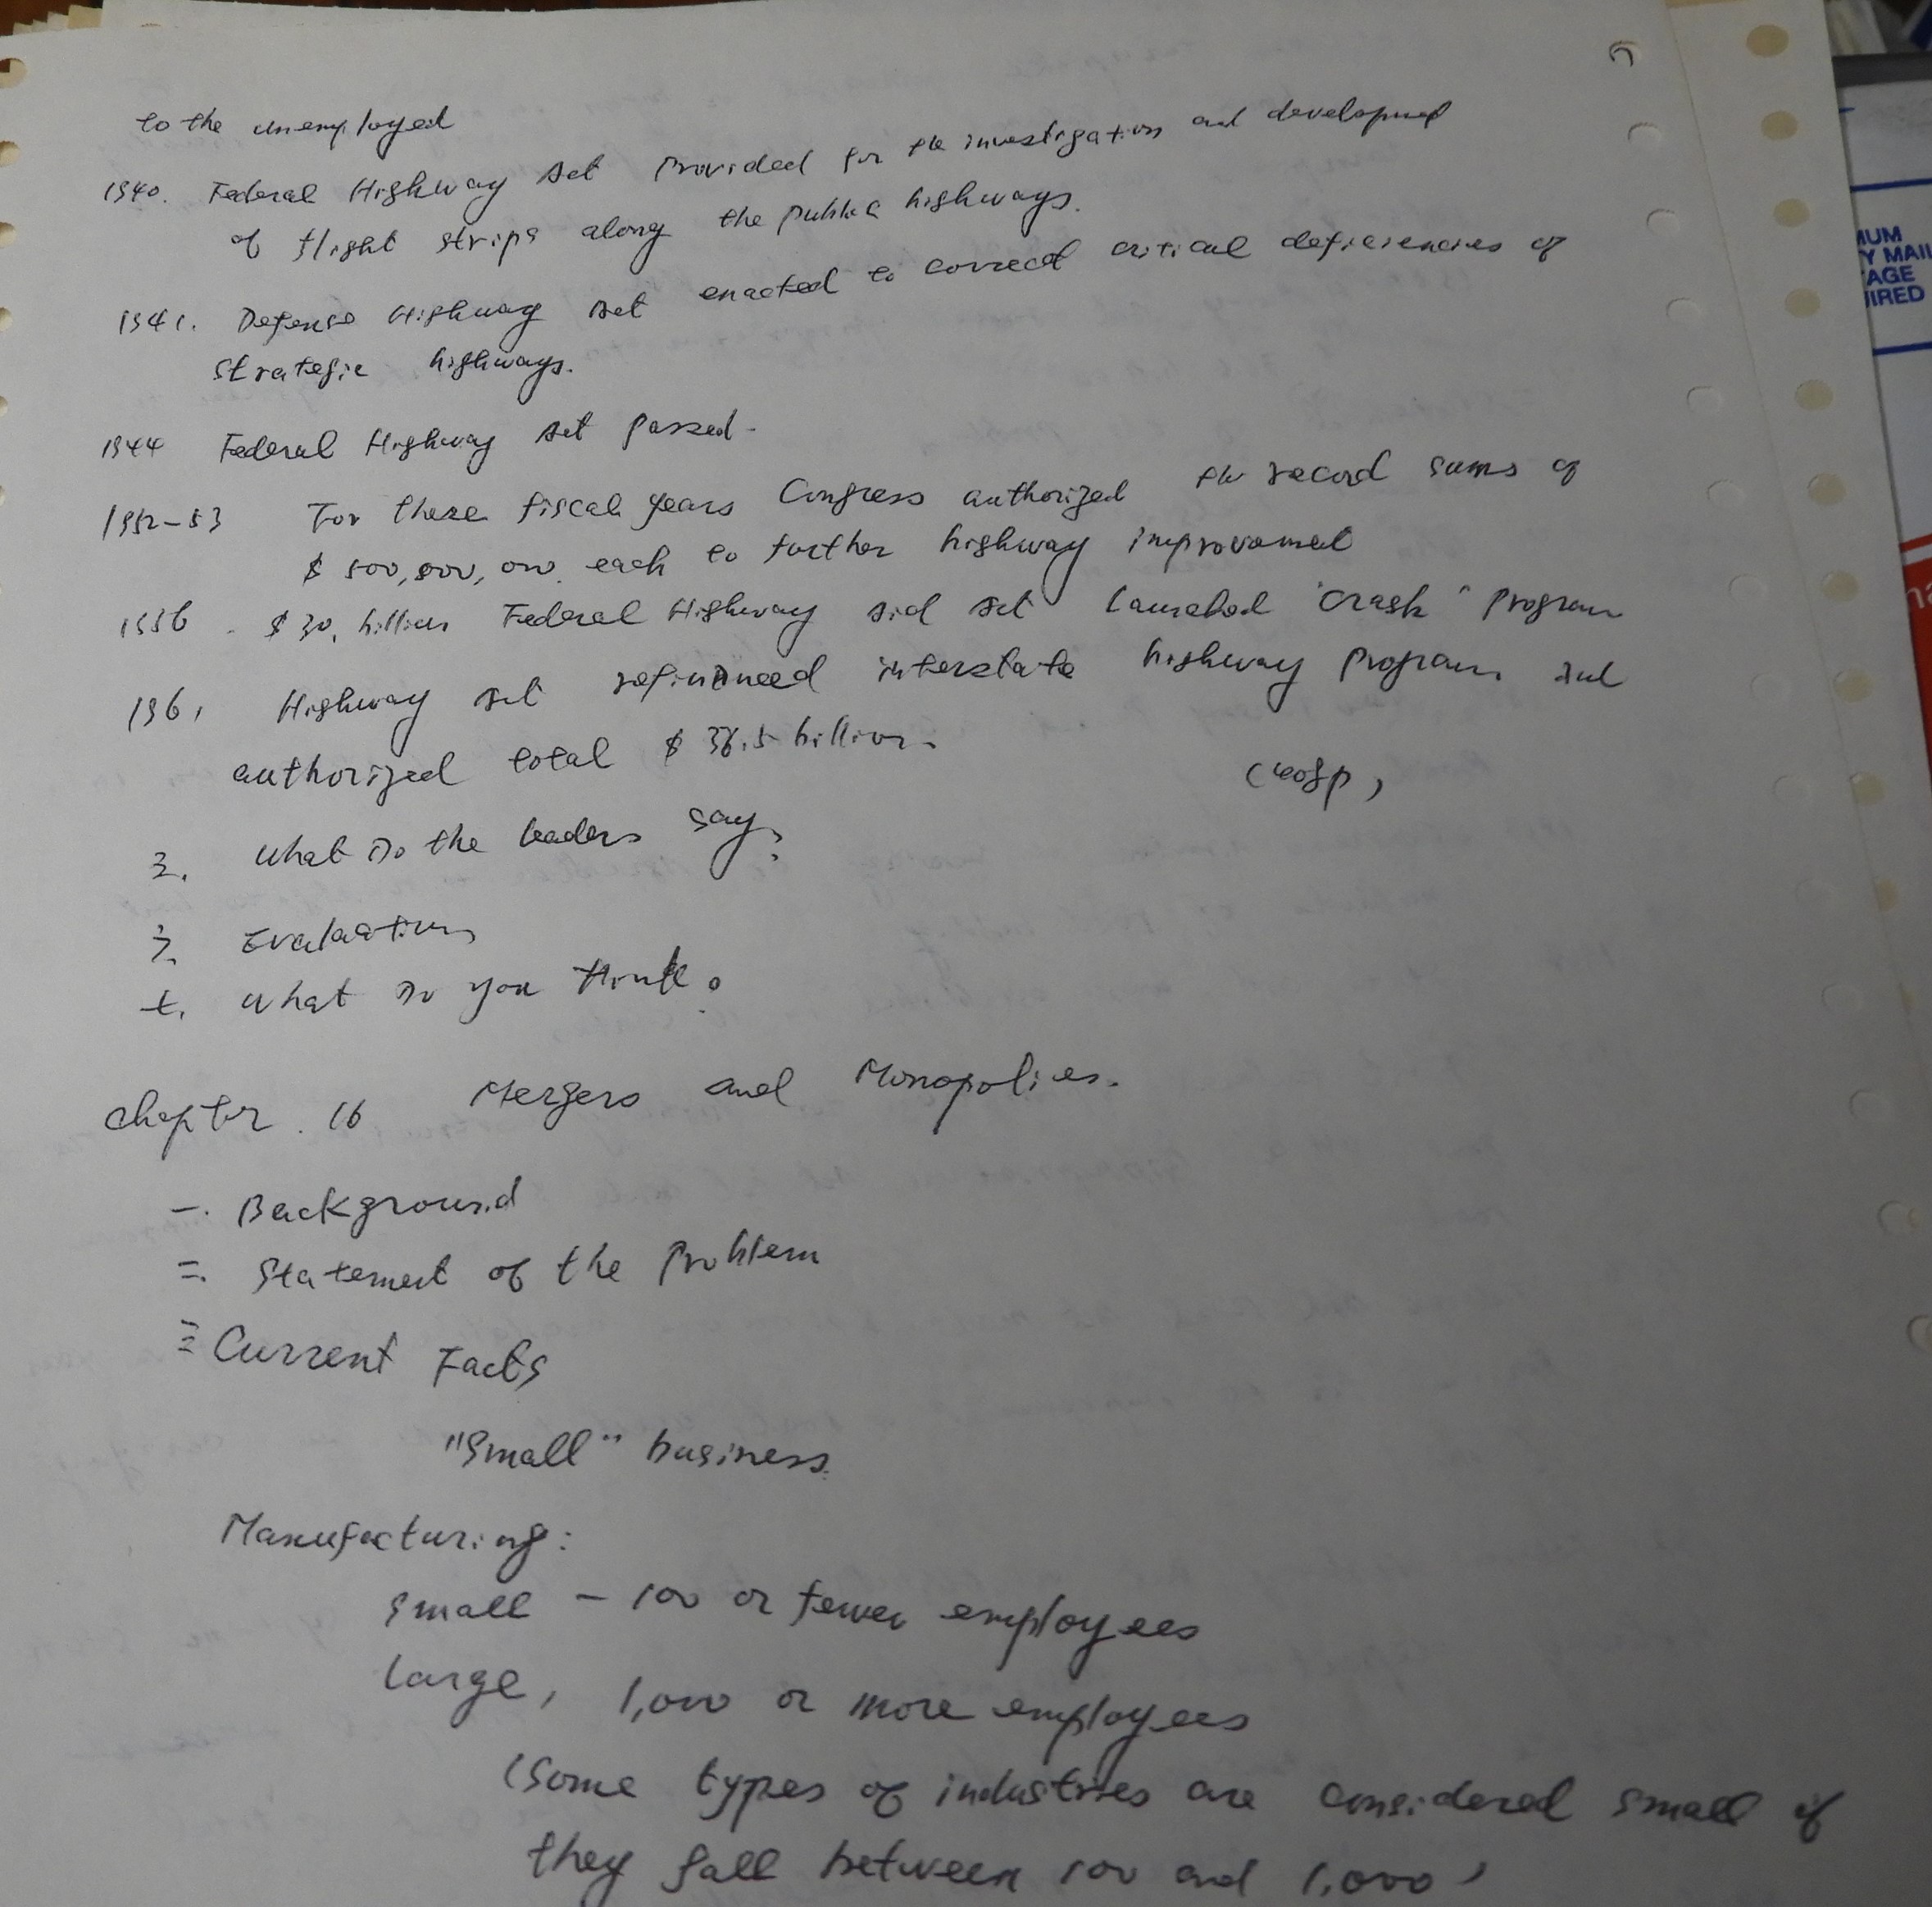 to the unemployed
1940. Federal Highway Act Provided for the investigation and development
of flight strips along the public highways.
1941. Defense Highway Act enacted to correct critical deficiencies of
strategic highways.
1944 Federal Highway Act passed.
1952-53 For these fiscal years Congress authorized the record sums of
$ 500,000,000 each to further highway improvement
1956. $30. billion Federal Highway Aid Act launched "crash" program
1961 Highway Act refinanced interstate highway program and
authorized total $ 36.5 billion.
What do the leaders say?
Evaluation
What do you think?
Chapter. 16 Mergers and Monopolies.
一. Background
二. Statement of the Problem
三 Current Facts
"Small" business.
Manufacturing:
small - 100 or fewer employees
large, 1,000 or more employees
(Some types of industries are considered small if
they fall between 100 and 1,000)
MUM
Y MAIL
AGE
IRED